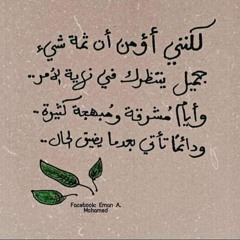 لكنني أؤمن أن ثمة شيء
جميل ينتظرك في نهاية الأمر..
وأيام مُشرقة ومُبهجة كثيرة..
ودائمًا تأتي بعدما يضيق الحال..
Facebook: Eman A.
Mohamed